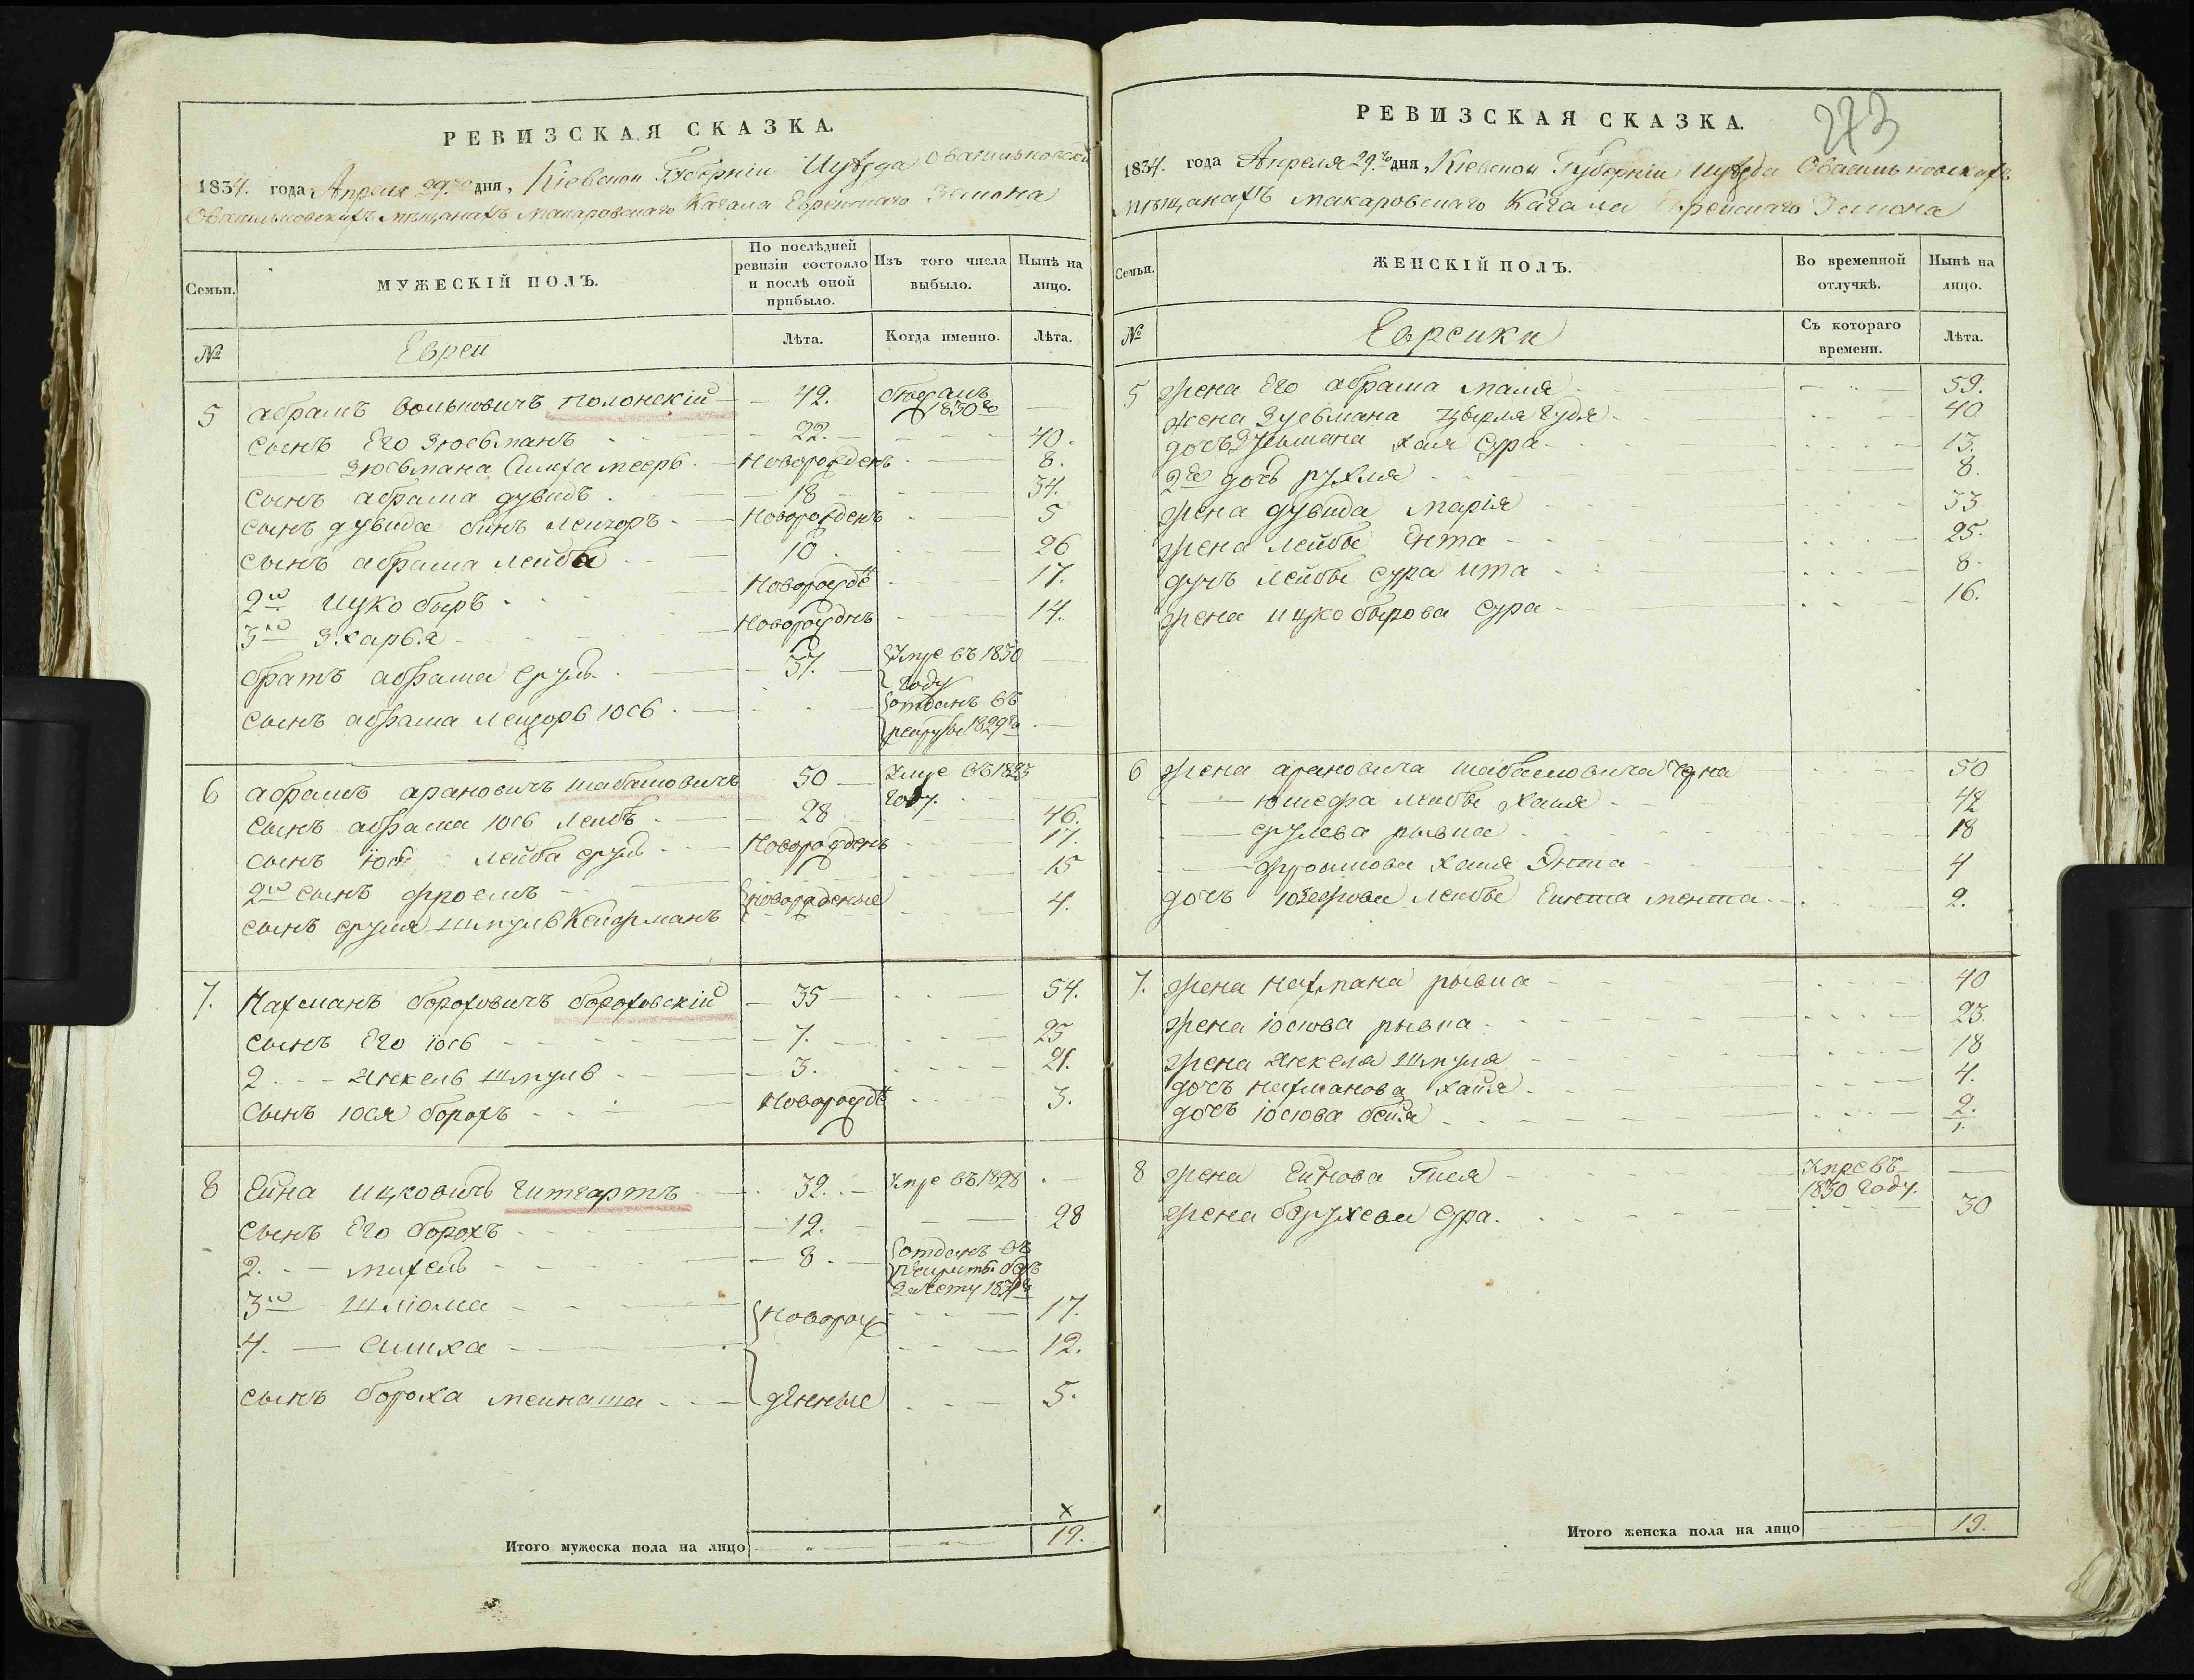 РЕВИЗСКАЯ СКАЗКА.
1834. года Апреля 29.го дня, Кіевской Губерніи Иуѣзда Овасильковски
Овасильковскихъ мѣщанахъ макаровскаго Кагала Еврейскаго Закона
Семьи.
МУЖЕСКІЙ ПОЛЪ.
По послѣдней ревизіи состояло и послѣ оной прибыло.
Изъ того числа выбыло.
Нынѣ на лицо.
№
Евреи
Лѣта.
Когда именно.
Лѣта.
5 абрамъ вольковичъ полонскій 42. 1830го
сынъ Его Зюсьманъ 22. 40.
Зюсьмана Симха мееръ новорожденъ 8.
сынъ абрама дувидъ 18 34.
сынъ дувида лейзоръ новорожденъ 5
сынъ абрама лейба 10 26
2й ицко беръ новорожд 17.
3й новорожднъ 14.
братъ абрама сруль 37. Умре въ 1830 году
сынъ абрама лейзоръ юсь отданъ въ рекруты 1829го
6 абрамъ арановичъ шабашовичъ 50 Умре въ 1823 году.
сынъ абрама юсь лейбъ 28 46.
сынъ юся лейба сруль новорожденъ 17.
2й сынъ фроемъ 15
сынъ сруля шмуль новорожденые 4.
7. Нахманъ бороховичъ бороховскій 35 54.
сынъ Его іось 7. 25
2 янкель шмуль 3. 21.
сынъ юся борохъ новорожд 3.
8 Ейна ицковичъ гитгартъ 32. Умре въ 1828
сынъ Его борохъ 12. 28
2. михель 8. отданъ въ
3й шліома новорож 17.
4. симха 12.
сынъ бороха меинаша денные 5.
Итого мужеска пола на лицо 19.
РЕВИЗСКАЯ СКАЗКА.
273
1834. года Апреля 29.го дня, Кіевской Губерніи иуѣзда Овасильковскихъ
мѣщанахъ макаровскаго Кагала Еврейскаго Закона
Семьи.
ЖЕНСКІЙ ПОЛЪ.
Во временной отлучкѣ.
Нынѣ на лицо.
№
Еврейки
Съ котораго времени.
Лѣта.
5 жена Его абрама маля 59.
жена Зусьмана цырля гудя 40
дочь Зусьмана хая сура 13.
2я дочь рухля 8.
жена дувида марія 33
жена лейбы Ента 25.
дучъ лейбы сура ита 8.
жена ицко берова сура 16.
6 жена арановича шабашовича 50
лейбы хаия 42
срулева рывка 18
фроимова хаия Энта 4
дочъ лейбы мента 2.
7. жена нахмана рывка 40
жена іосіова рывка 23.
жена янкеля шпуля 18
дочъ нахманова хаия 4.
дочъ іосіова бейя 2.
8 жена Ейнова Гися Умре въ 1830 году.
жена борухева сура 30
Итого женска пола на лицо 19.